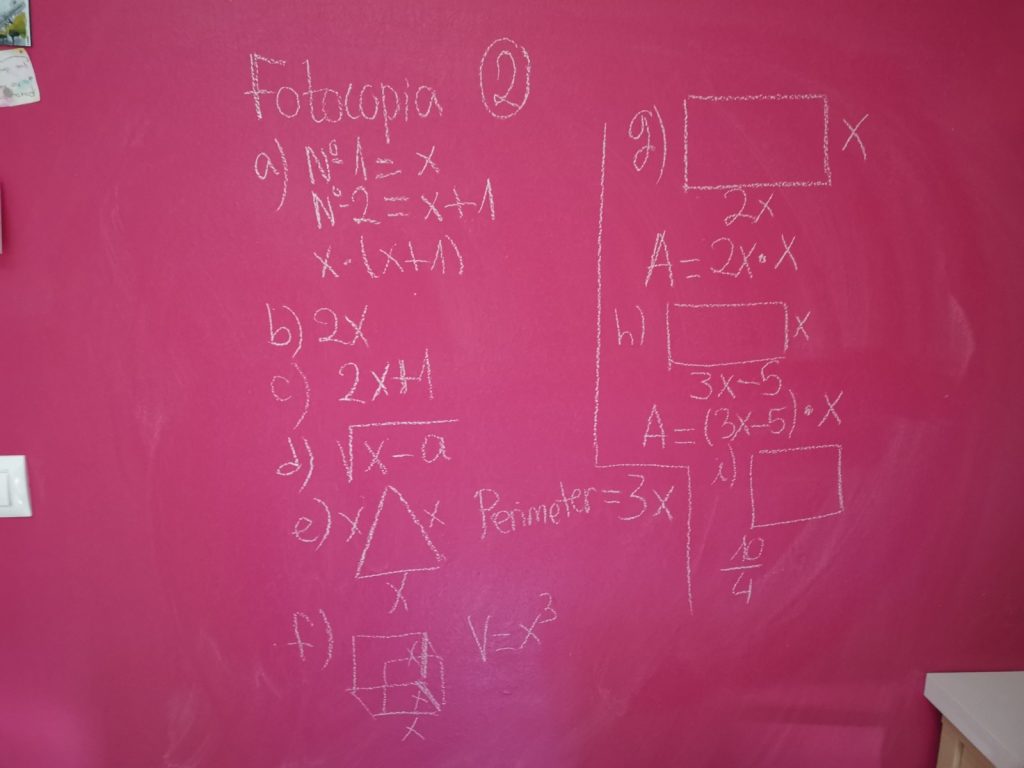 Fotocopia 2
a) Nº 1 = x
Nº 2 = x+1
x·(x+1)
b) 2x
c) 2x+1
d) √x-a
e) x x Perimeter = 3x
x
f) x V = x³
x
x
g) x
2x
A = 2x·x
h) x
3x-5
A = (3x-5)·x
i)
10
4